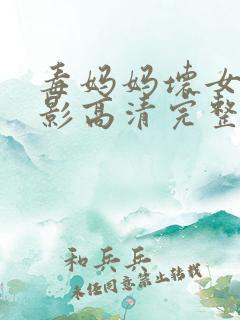 毒妈妈坏女
影高清完整
和兵兵
未经同意禁止转载